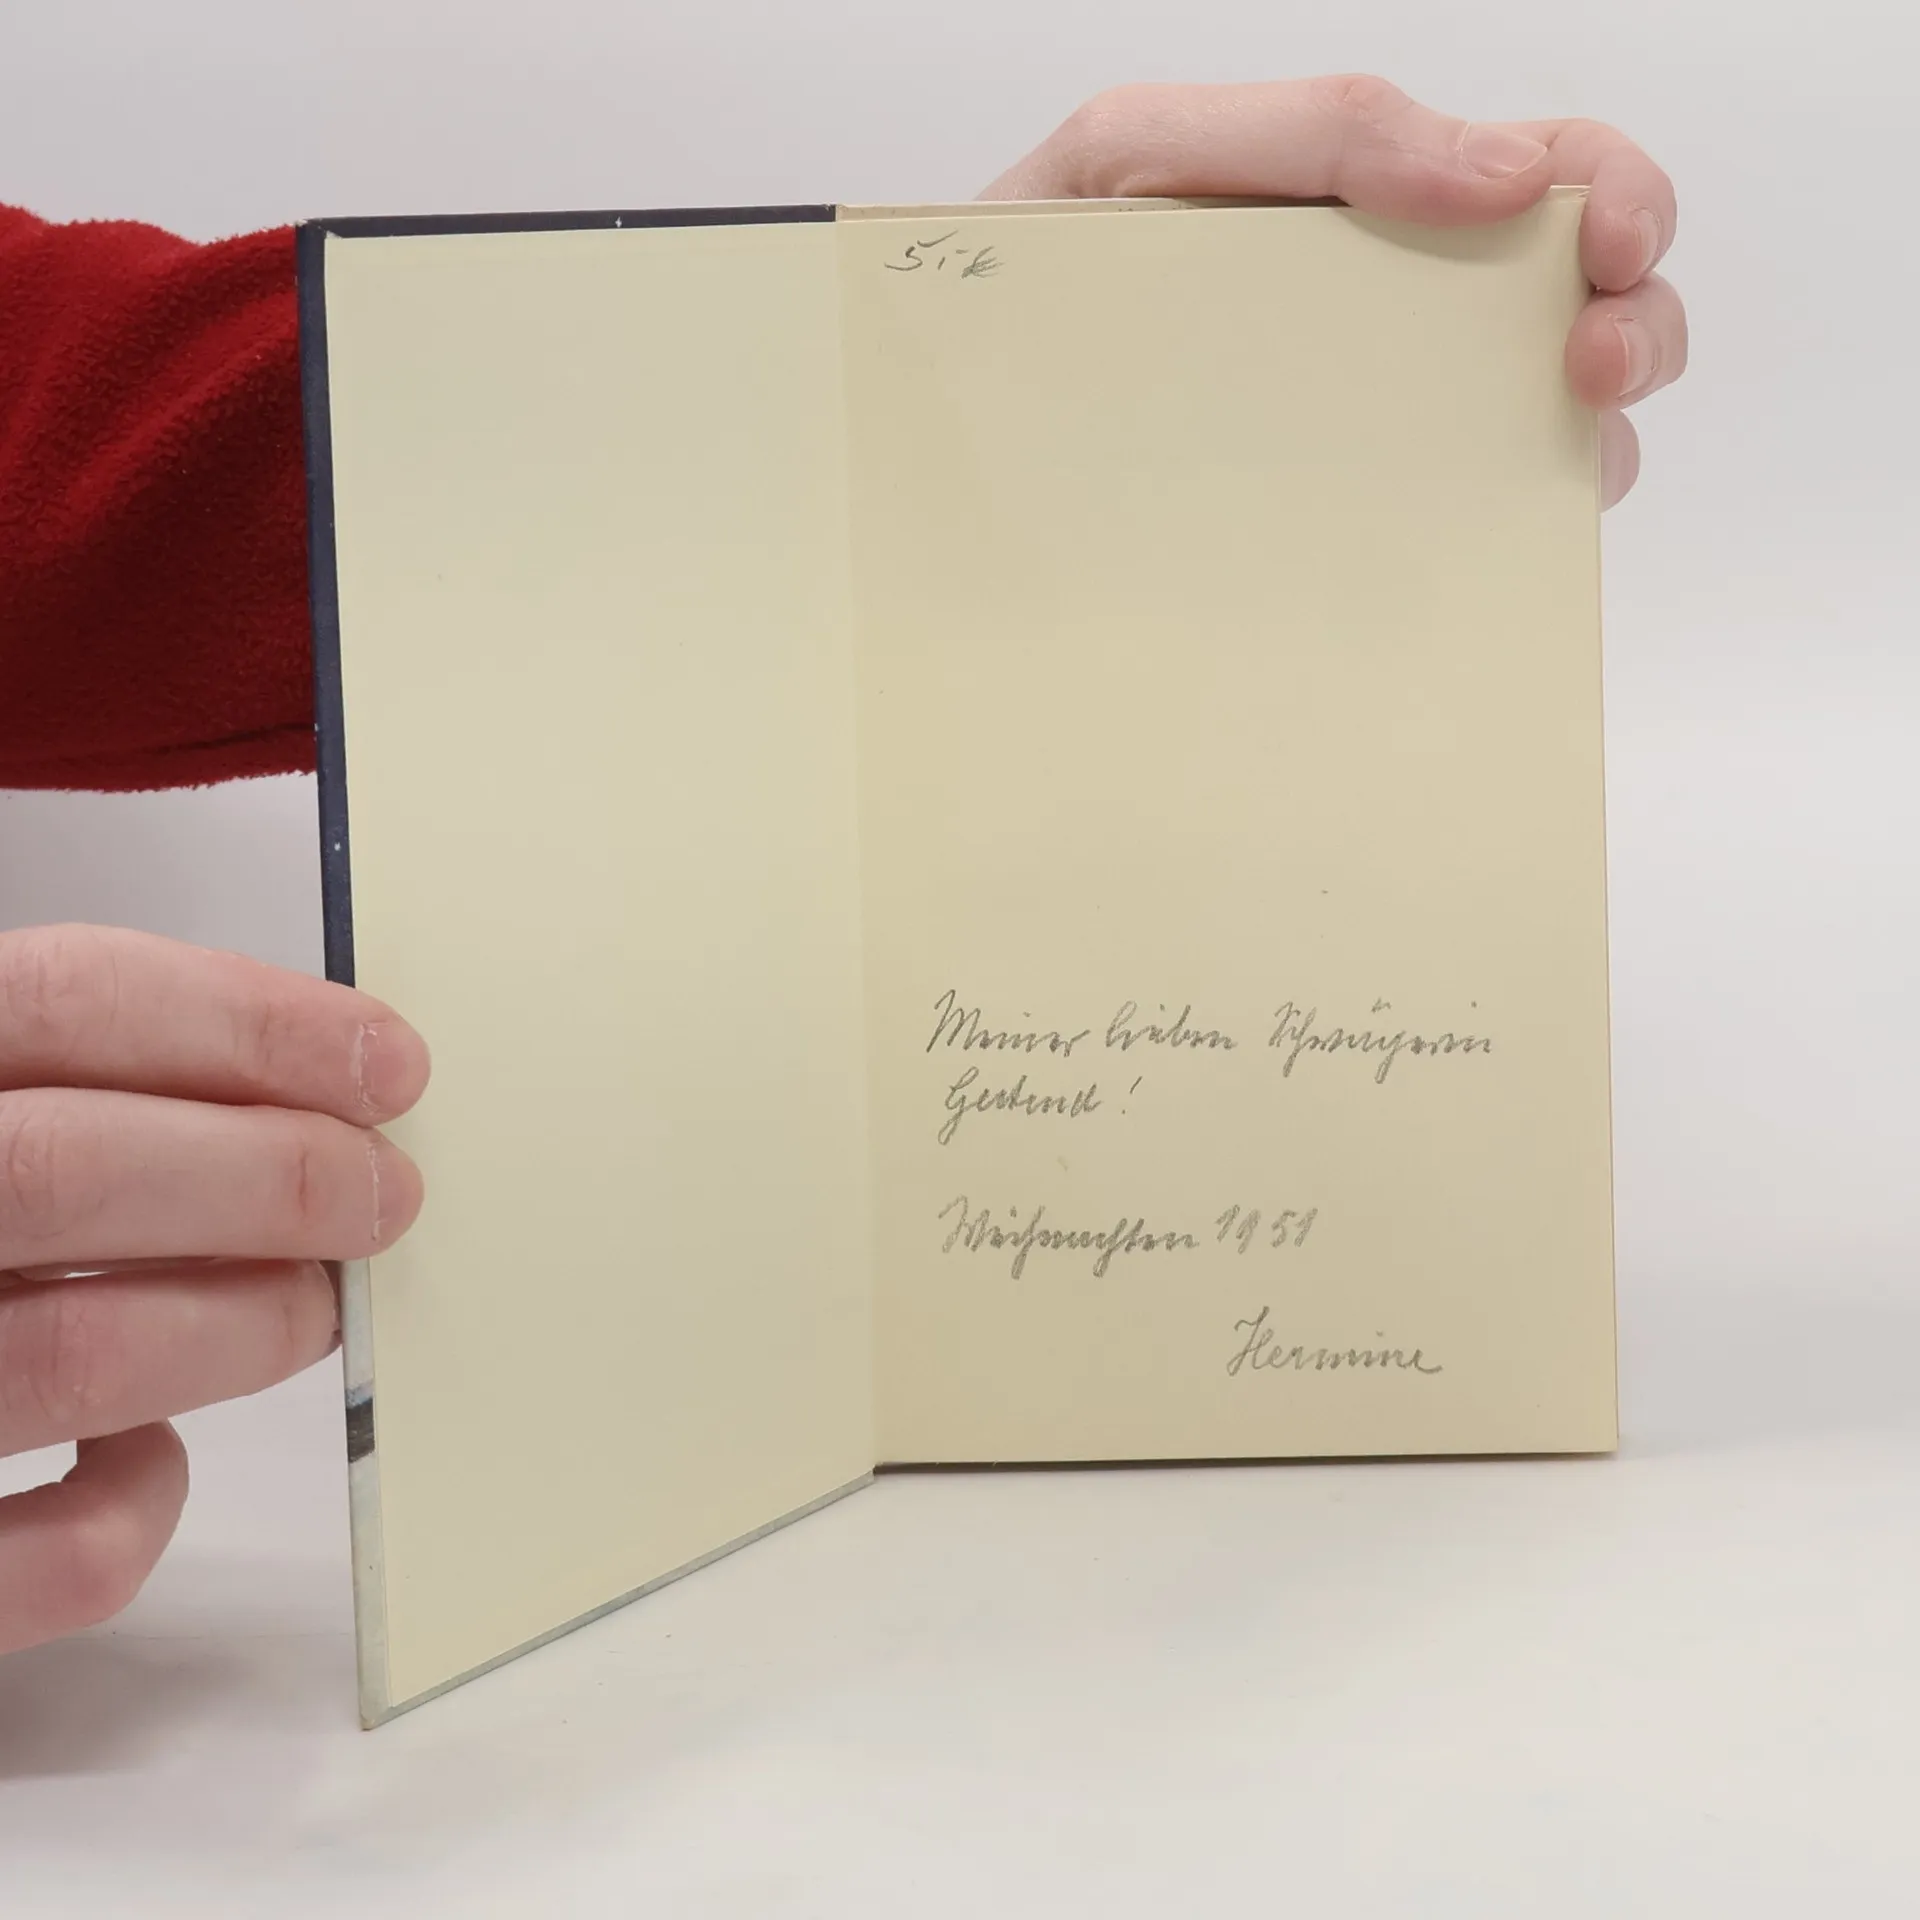 5,- €
Meiner lieben Schwägerin
Gertrud!
Weihnachten 1951
Hermine